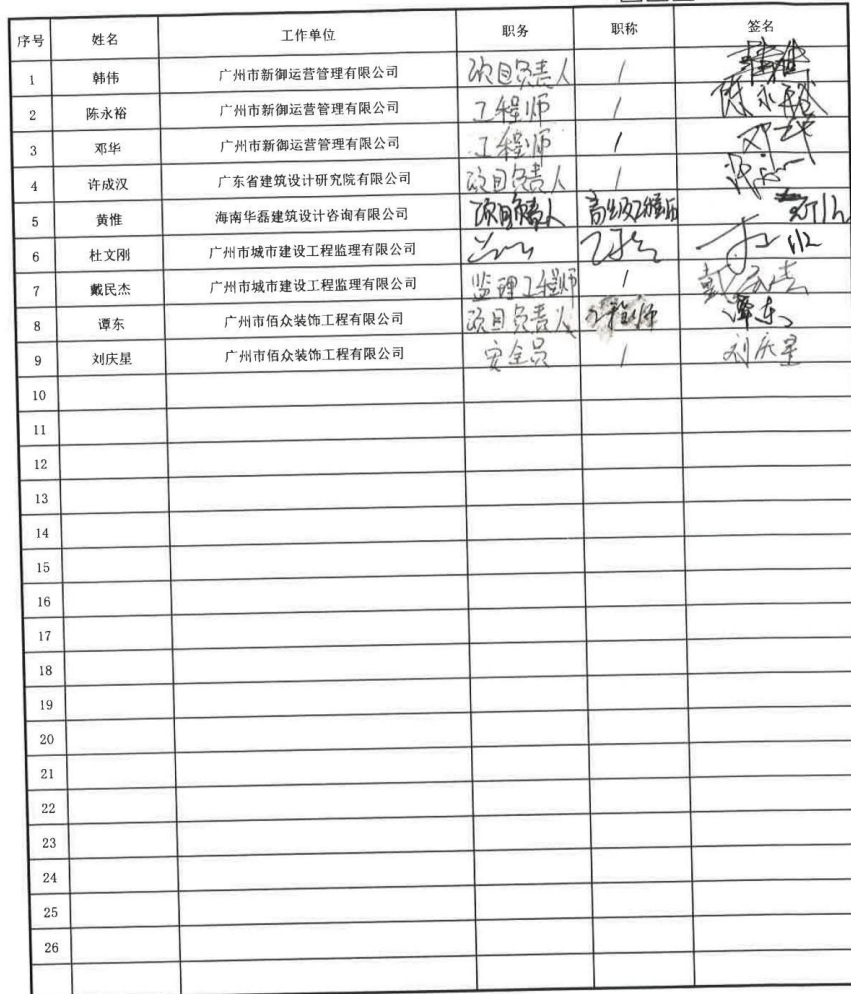 序号 姓名 工作单位 职务 职称 签名
1 韩伟 广州市新御运营管理有限公司 项目负责人 /
2 陈永裕 广州市新御运营管理有限公司 工程师 / 陈永裕
3 邓华 广州市新御运营管理有限公司 工程师 / 邓华
4 许成汉 广东省建筑设计研究院有限公司 项目负责人 /
5 黄惟 海南华磊建筑设计咨询有限公司 项目负责人 高级工程师
6 杜文刚 广州市城市建设工程监理有限公司
7 戴民杰 广州市城市建设工程监理有限公司 监理工程师 /
8 谭东 广州市佰众装饰工程有限公司 项目负责人 工程师 谭东
9 刘庆星 广州市佰众装饰工程有限公司 安全员 / 刘庆星
10
11
12
13
14
15
16
17
18
19
20
21
22
23
24
25
26